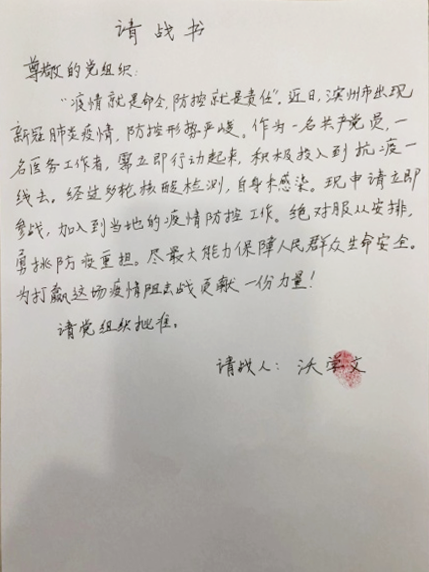 请战书
尊敬的党组织:
“疫情就是命令,防控就是责任”。近日,滨州市出现
新冠肺炎疫情,防控形势严峻。作为一名共产党员,一
名医务工作者,需立即行动起来,积极投入到抗疫一
线去。经过多轮核酸检测,自身未感染。现申请立即
参战,加入到当地的疫情防控工作。绝对服从安排,
勇挑防疫重担。尽最大能力保障人民群众生命安全。
为打赢这场疫情阻击战贡献一份力量!
请党组织批准。
请战人:沃学文